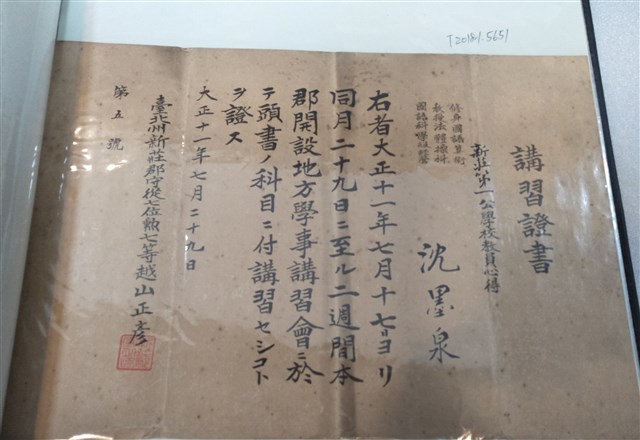 T2018.1.5651
講習證書
新莊第一公學校教員心得
沈墨泉
修身國語算術
教授法體操科
國語科學級經營
右者大正十一年七月十七日ヨリ
同月二十九日ニ至ル二週間本
郡開設地方學事講習會ニ於
テ頭書ノ科目ニ付講習セシコト
ヲ證ス
大正十一年七月二十九日
臺北州新莊郡守從七位勲七等越山正彥
第五號